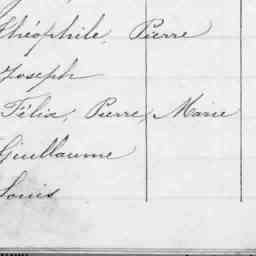 Théophile, Pierre
Joseph
Félix, Pierre, Marie
Guillaume
Louis